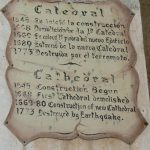 Catedral
1545 Se inició la construcción
Demolición la 1ª Catedral
1680 Estreno de la nueva Catedral
1773 Destruida por el terremoto.
Cathedral
1545 Construction Begun
First Cathedral demolished
1669-80 Construction of new Cathedral
1773 Destroyed by Earthquake.